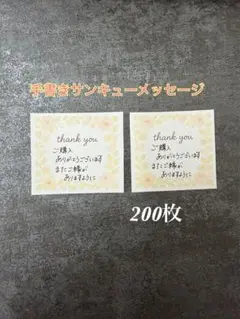 手書きサンキューメッセージ
thank you
ご購入
ありがとうございます
またご縁が
ありますように
thank you
ご購入
ありがとうございます
またご縁が
ありますように
200枚